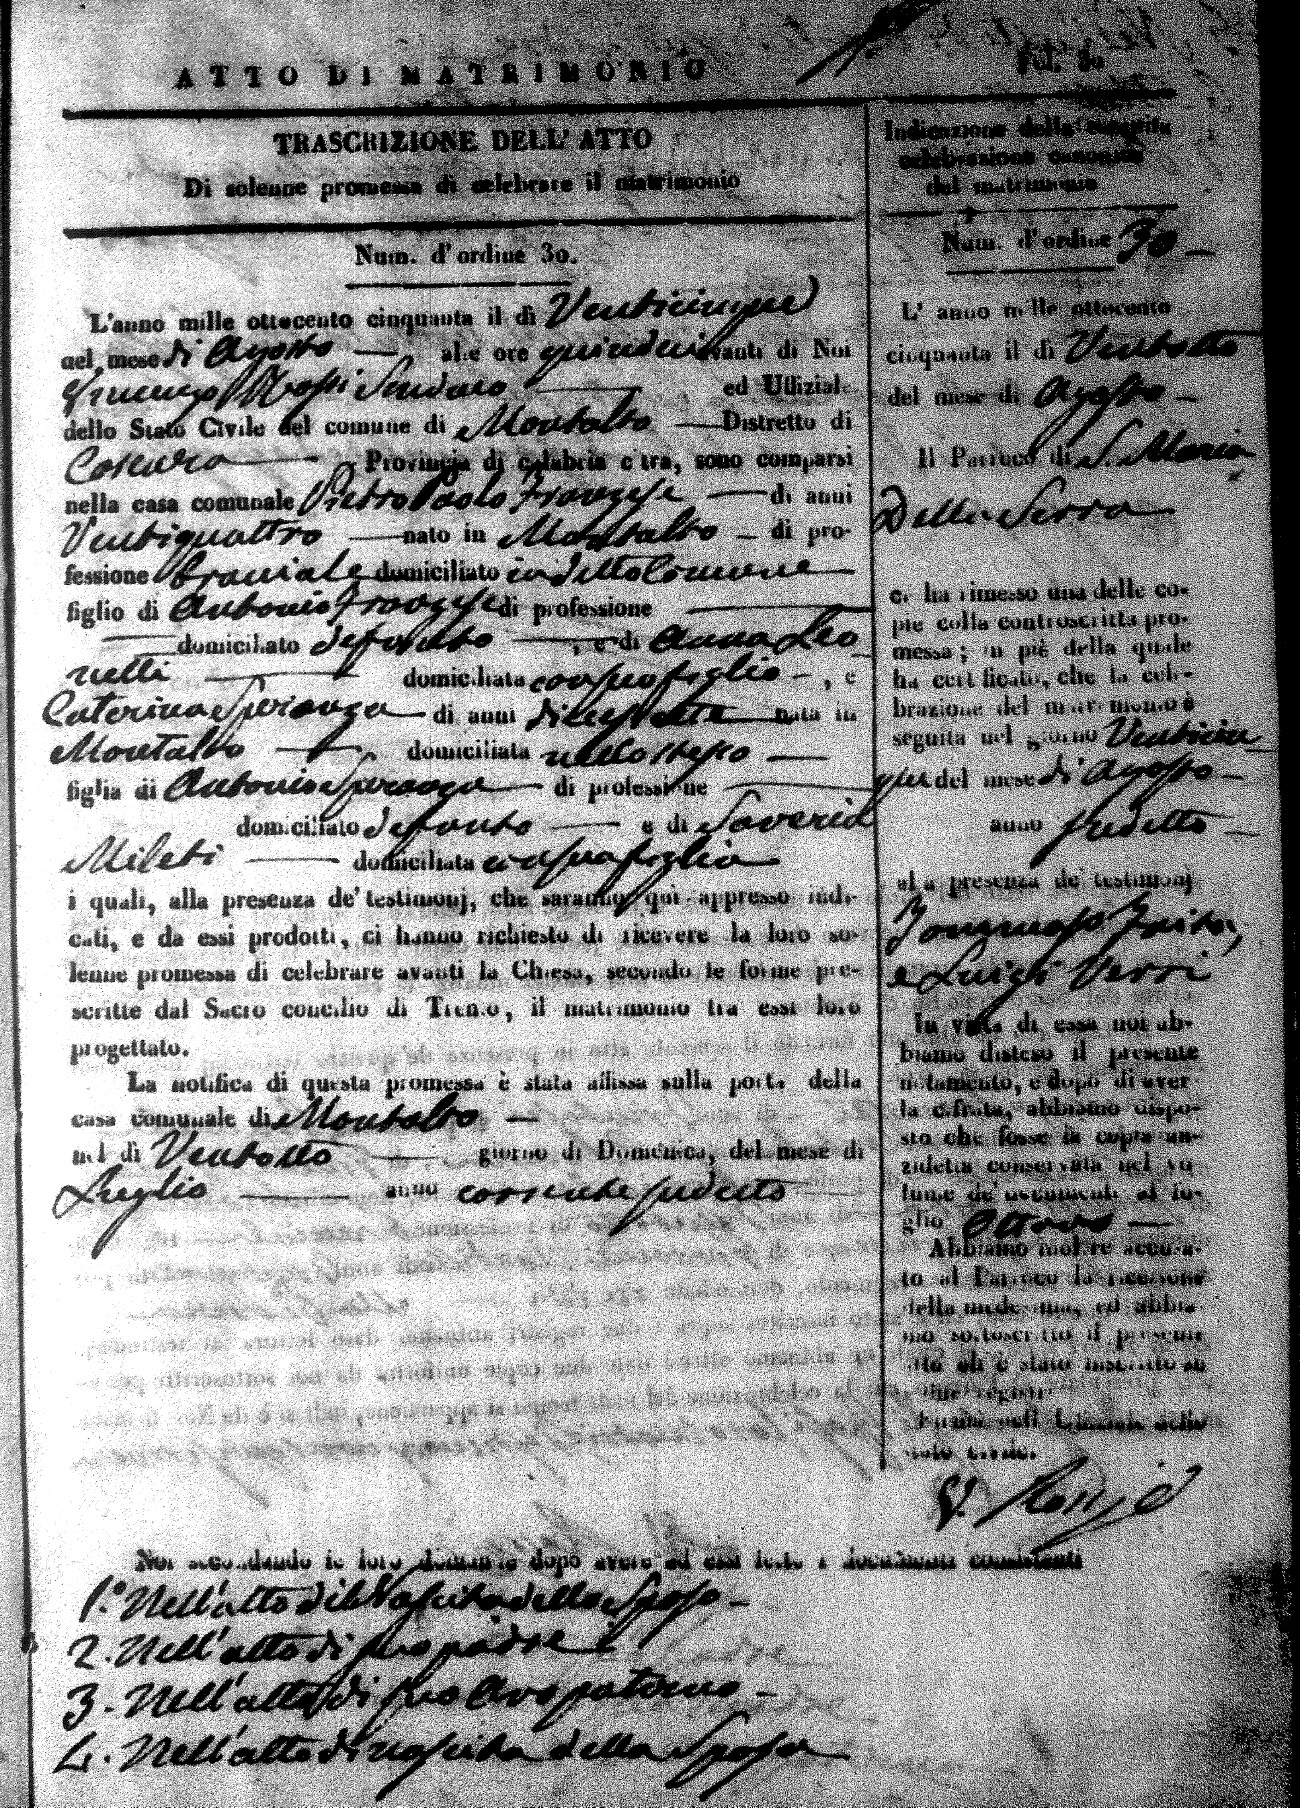 ATTO DI MATRIMONIO
Fol. 30
TRASCRIZIONE DELL' ATTO
Di solenne promessa di celebrare il matrimonio
Num. d'ordine 30.
L'anno mille ottocento cinquanta il dì Venticinque
nel mese di Agosto — alle ore quindici avanti di Noi
Vincenzo Rossi Sindaco — ed Uffiziale
dello Stato Civile del comune di Montalto — Distretto di
Cosenza — Provincia di calabria citra, sono comparsi
nella casa comunale Pietro Paolo Franzese — di anni
Ventiquattro — nato in Montalto — di pro-
fessione Braciale domiciliato in detto Comune —
figlio di Antonio Franzese di professione —
— domiciliato defonto — , e di Anna Leo
netti — domiciliata con suo figlio — , e
Caterina Speranza — di anni diciassette — nata in
Montalto — domiciliata nello stesso —
figlia di Antonio Speranza — di professione —
domiciliato defonto — e di Saveria
Mileti — domiciliata con sua figlia —
i quali, alla presenza de' testimonj, che saranno quì appresso indi-
cati, e da essi prodotti, ci hanno richiesto di ricevere la loro so-
lenne promessa di celebrare avanti la Chiesa, secondo le forme pre-
scritte dal Sacro concilio di Trento, il matrimonio tra essi loro
progettato.
La notifica di questa promessa è stata affissa sulla porta della
casa comunale di Montalto —
nel dì Ventotto — giorno di Domenica, del mese di
Luglio — anno corrente sudetto —
Indicazione della seguita
celebrazione canonica
del matrimonio
Num. d'ordine 30 —
L' anno mille ottocento
cinquanta il dì Ventotto
del mese di Agosto —
Il Parroco di S. Maria
Della Serra —
ci ha rimesso una delle co-
pie della controscritta pro-
messa; in piè della quale
ha certificato, che la cele-
brazione del matrimonio è
seguita nel giorno Venticin
que del mese di Agosto —
anno sudetto —
alla presenza de' testimonj
Tommaso Zaita,
e Luigi Verri
In vista di essa noi ab-
biamo disteso il presente
notamento, e dopo di aver
la cifrata, abbiamo dispo-
sto che fosse la copia an-
zidetta conservata nel vo
lume de' documenti al fo-
glio Ottavo —
Abbiamo inoltre accusa-
to al Parroco la ricezione
della medesima, ed abbia-
mo sottoscritto il presente
atto ch'è stato inscritto su
due registri
Firma dell' Uffiziale dello
stato civile.
V. Rossi
Noi secondando le loro domande dopo avere ad essi letto i documenti consistenti
1.° Nell'atto di Nascita dello Sposo —
2. Nell'atto di suo padre
3. Nell'atto di suo avo paterno —
4. Nell'atto di nascita della Sposa —